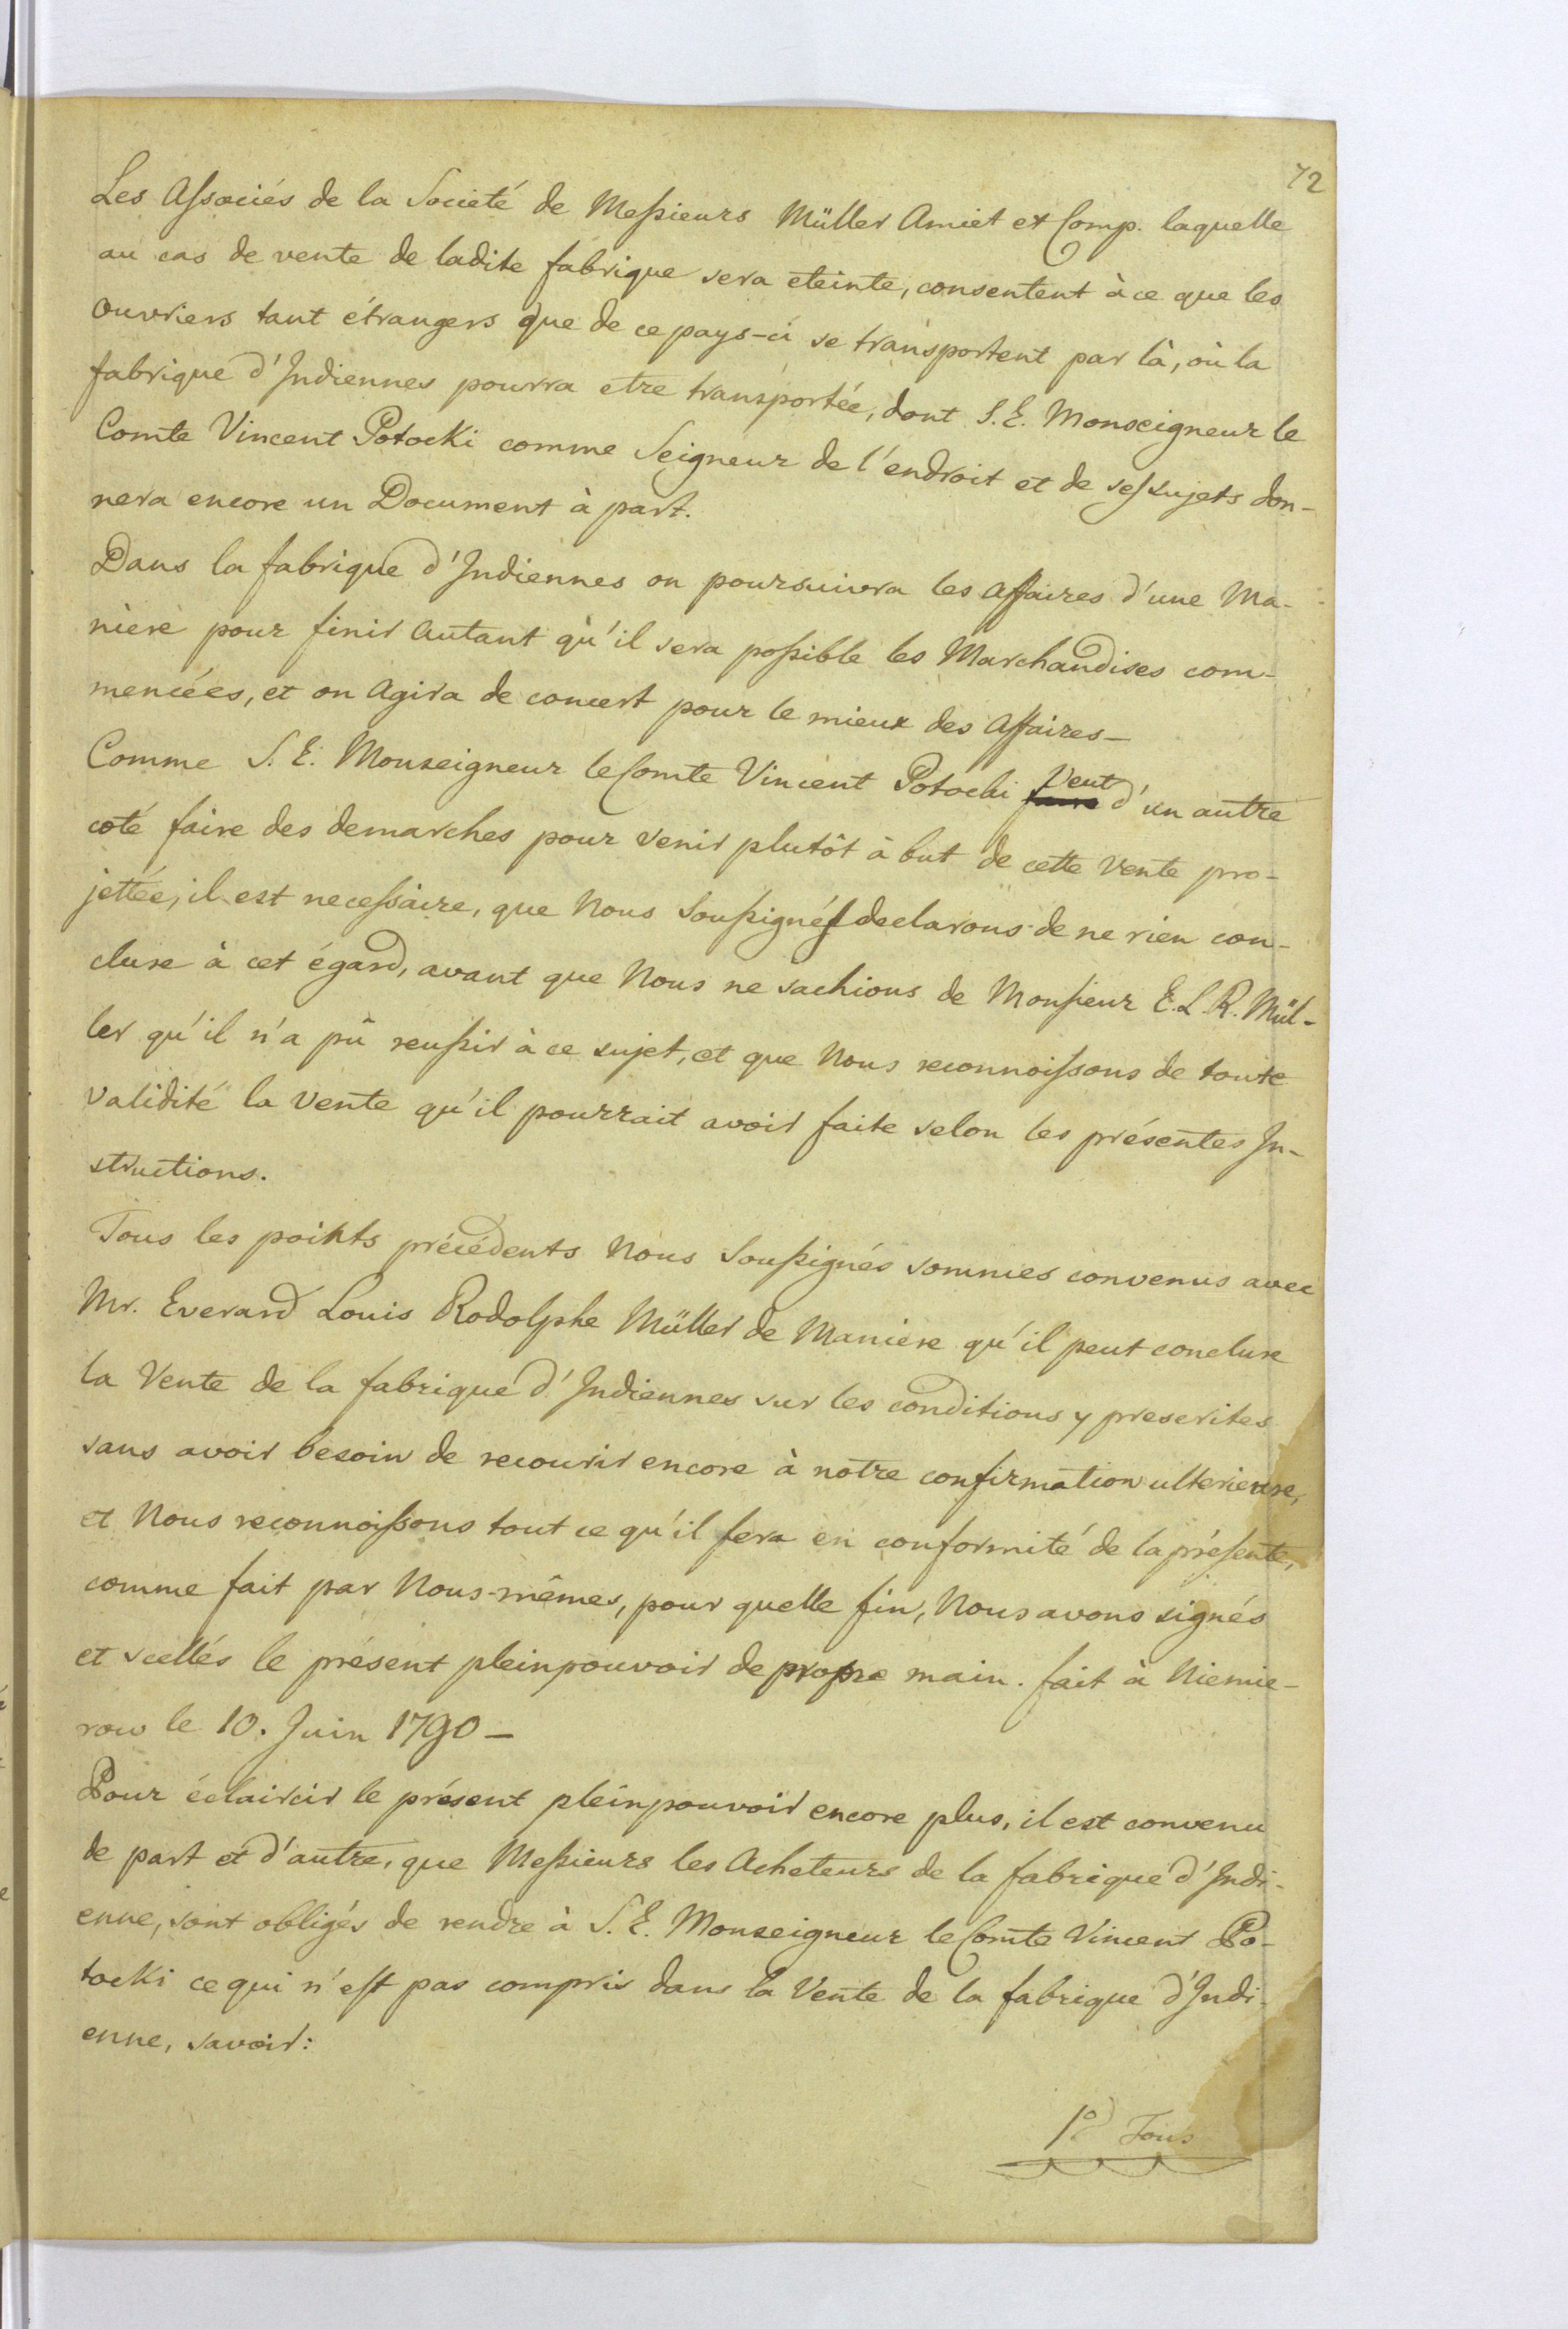 72
Les Associés de la Societé de Messieurs Müller Amiet et Comp. laquelle
au cas de vente de ladite fabrique sera eteinte, consentent à ce que les
ouvriers tant étrangers que de ce pays-ci se transportent par là, où la
fabrique d'Indiennes pourra etre transportée, dont S. E. Monseigneur le
Comte Vincent Potocki comme Seigneur de l'endroit et de ses sujets don-
nera encore un Document à part.
Dans la fabrique d'Indiennes on poursuivra les affaires d'une Ma-
nière pour finir autant qu'il sera possible les Marchandises com-
mencées, et on agira de concert pour le mieux des affaires_
Comme S. E. Monseigneur le Comte Vincent Potocki Veut d'un autre
coté faire des demarches pour venir plutôt à but de cette vente pro-
jettée, il est necessaire, que Nous Soussignés declarons de ne rien con-
clure à cet égard, avant que Nous ne sachions de Monsieur E. L. R. Mül-
ler qu'il n'a pû reussir à ce sujet, et que Nous reconnoissons de toute
validité la Vente qu'il pourrait avoir faite selon les présentes In-
structions.
Tous les points précédents Nous Soussignés sommes convenus avec
Mr. Everard Louis Rodolphe Müller de Maniere qu'il peut conclure
la Vente de la fabrique d'Indiennes sur les conditions y prescrites
sans avoir besoin de recourir encore à notre confirmation ulterieure,
et Nous reconnoissons tout ce qu'il fera en conformité de la présente,
comme fait par Nous-mêmes, pour quelle fin, Nous avons signés
et scellés le présent pleinpouvoir de propre main. fait à Niemie-
row le 10. Juin 1790_
Pour éclaircir le présent pleinpouvoir encore plus, il est convenu
de part et d'autre, que Messieurs les Acheteurs de la fabrique d'Indi-
enne, sont obligés de rendre à S. E. Monseigneur le Comte Vincent Po-
tocki ce qui n'est pas compris dans la Vente de la fabrique d'Indi-
enne, savoir:
1º Tous